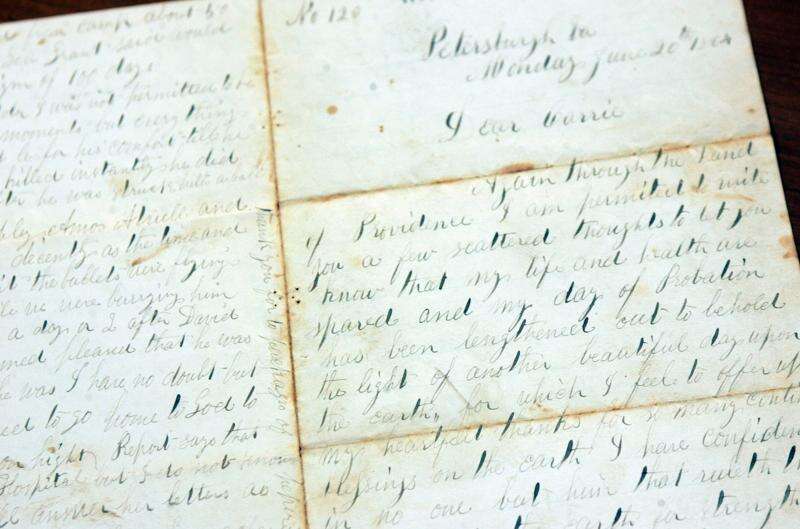 camp about 50
Gen Grant said would
of 100 days
I was not permitted to be
moments but everything
for his comfort till he
killed instantly he did
he was struck with a ball
Amos Steele and
decently as the time and
the bullets were flying
we were burying him
a day or 2 after David
pleased that he was
he was I have no doubt but
to go home to God to
on high Report says that
Hospital but I do not know
answer her letters as
No 120
Petersburgh Va
Monday June 20th 1864
Dear Carrie
Again through the hand
of Providence I am permitted to write
you a few scattered thoughts to let you
know that my life and health are
spared and my day of Probation
has been lengthened out to behold
the light of another beautiful day upon
the earth, for which I feel to offer up
my heartfelt thanks for so many
blessings on the earth I have
in no one but him that ruleth
the earth for strength